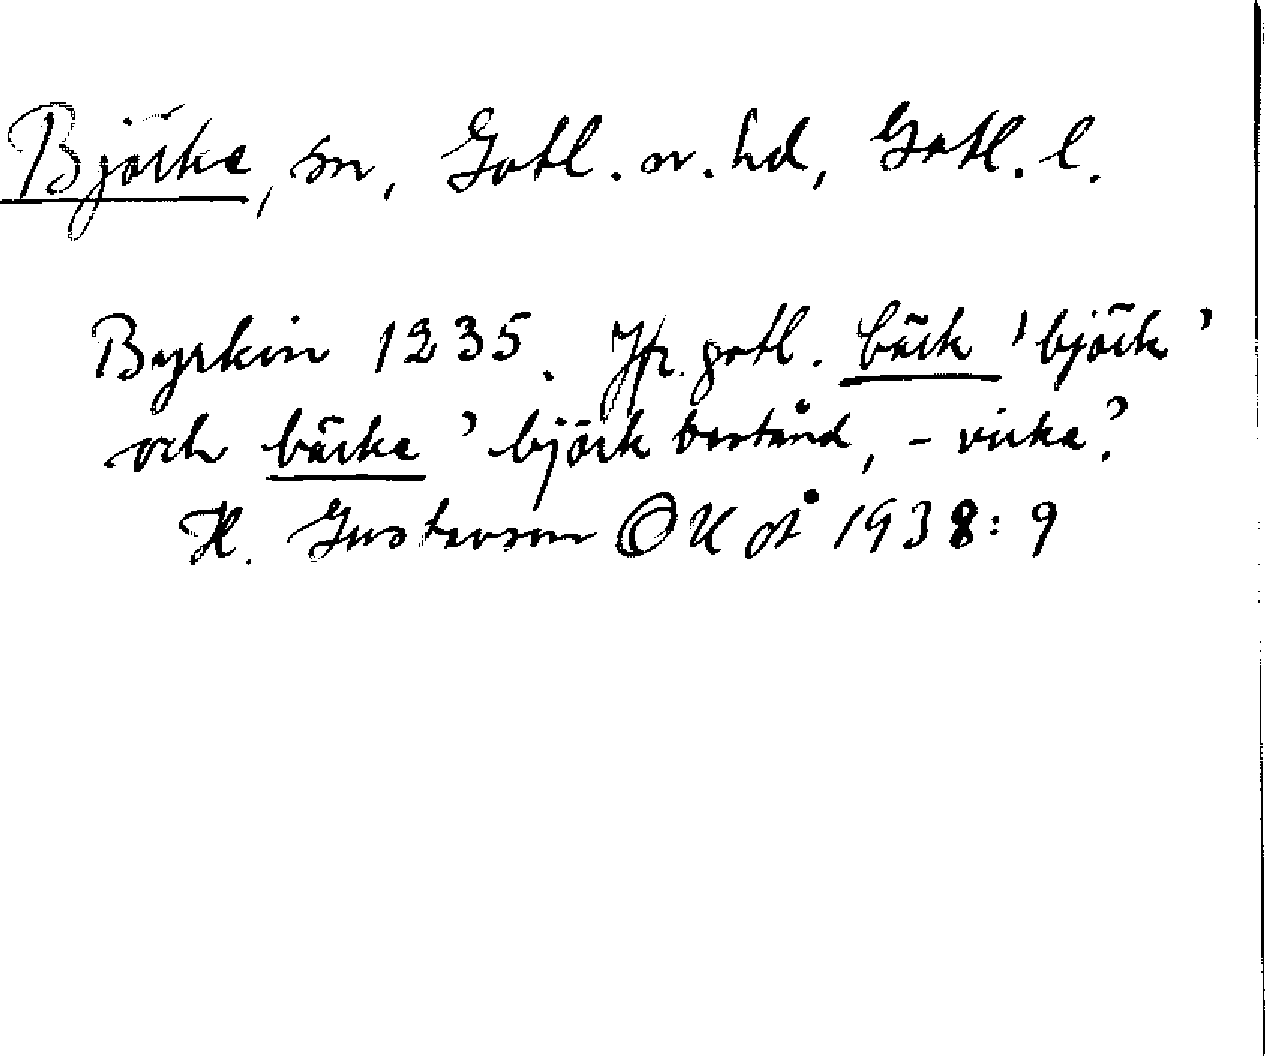 Björke, sn, Gotl. n. hd, Gotl. l.
Byrkin 1235. Jfr. gotl. bärk 'björk'
och bärke 'björkbestånd, -virke'.
H. Gustavson OUÅ 1938: 9